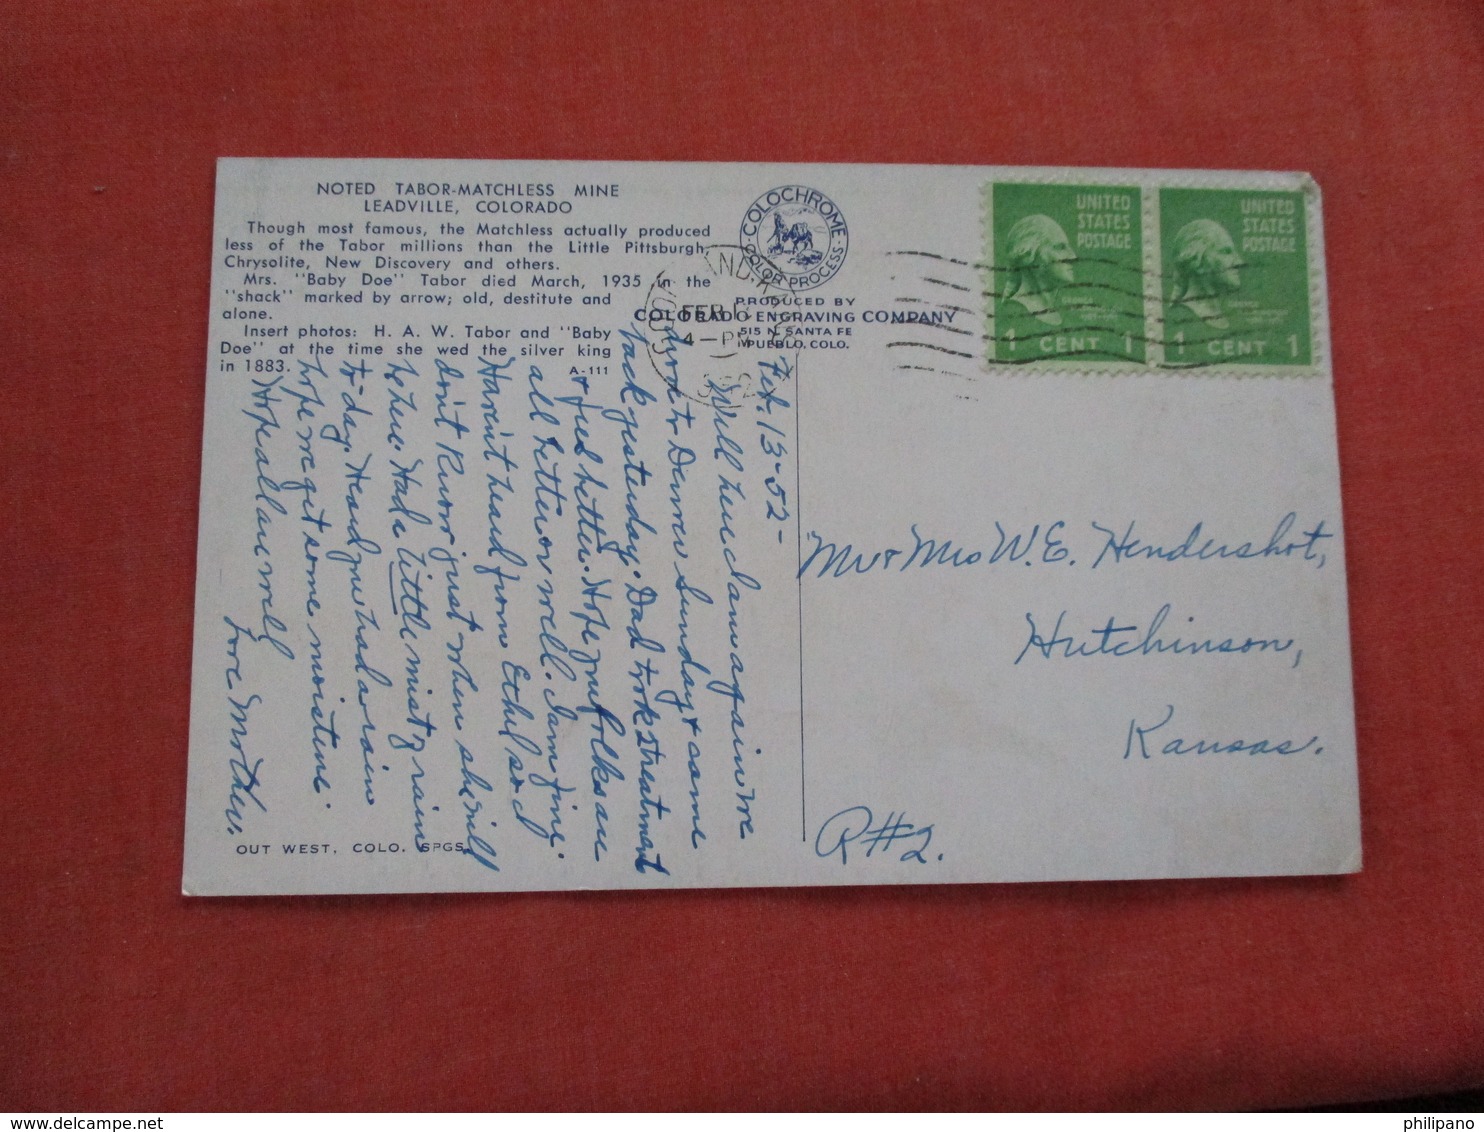 NOTED TABOR-MATCHLESS MINE
LEADVILLE, COLORADO
Though most famous, the Matchless actually produced
less of the Tabor millions than the Little Pittsburgh,
Chrysolite, New Discovery and others.
Mrs. "Baby Doe" Tabor died March, 1935 in the
"shack" marked by arrow; old, destitute and
alone.
Insert photos: H. A. W. Tabor and "Baby
Doe" at the time she wed the silver king
in 1883.
A-111
COLOCHROME
COLOR PROCESS
PRODUCED BY
COLORADO ENGRAVING COMPANY
515 N. SANTA FE
PUEBLO, COLO.
FEB 13
4-PM
1952
COLO
UNITED
STATES
POSTAGE
1 CENT 1
UNITED
STATES
POSTAGE
1 CENT 1
Feb. 13-52-
Well here I am again we
drove to Denver Sunday & came
back yesterday. Dad took 2 treatment
& feels better. Hope you folks are
all better or well. I am fine.
Haven't heard from Ethel so I
don't know just when she will
be here. Had a little misty rain
to-day. Heard you had a rain
hope we get some moisture.
Hope all are well
Love Mother.
Mr & Mrs W. E. Hendershot,
Hutchinson,
Kansas.
R#2.
OUT WEST, COLO. SPGS.
philipano